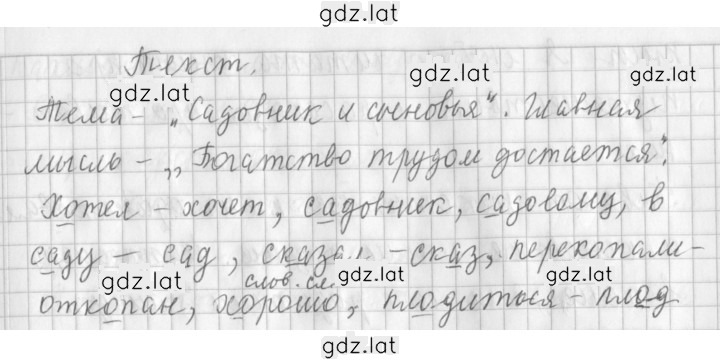 gdz.lat
Текст.
gdz.lat gdz.lat
gdz.lat
Тема - „Садовник и сыновья". Главная
мысль - „Богатство трудом достается".
Хотел - хочет, садовник, садовому, в
саду - сад, сказал - сказ, перекопали -
gdz.lat слов. сл. gdz.lat gdz.lat
откопан, хорошо, плодиться - плод
gdz.lat